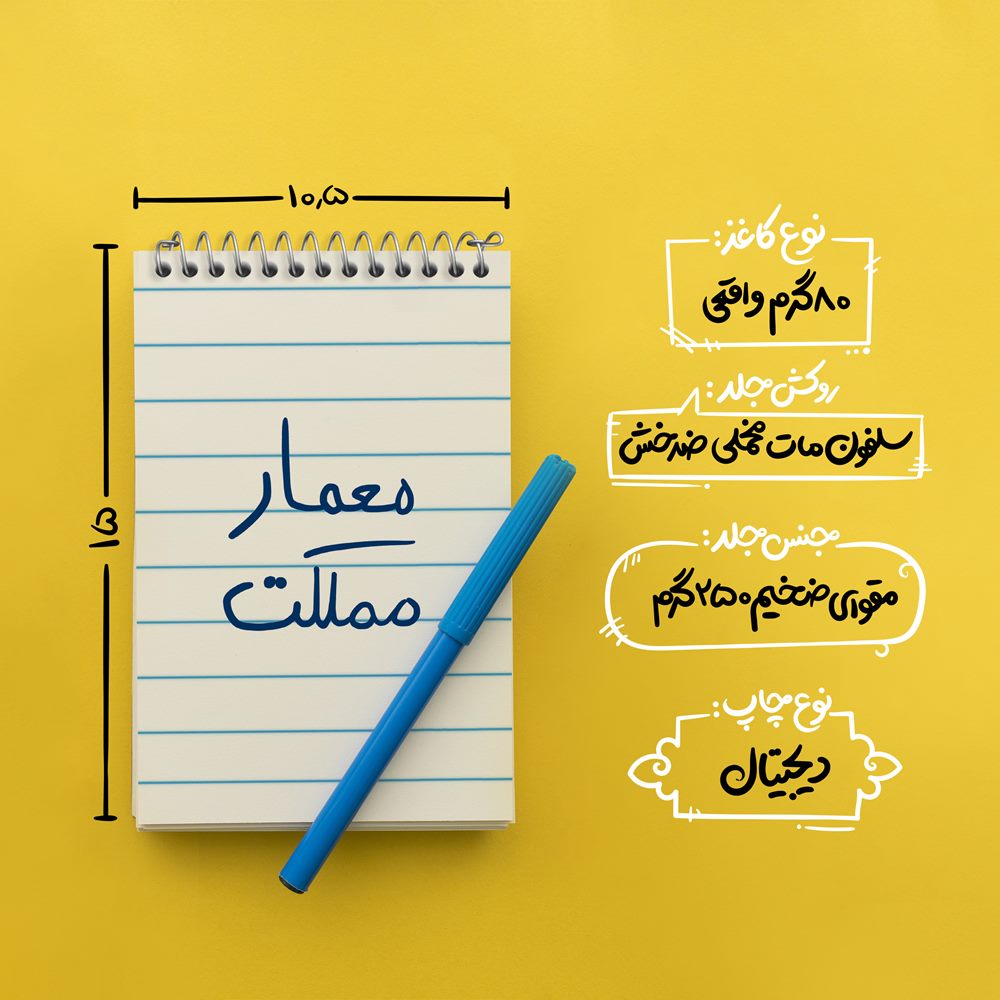 ۱۰٫۵
۱۵
معمار
مملکت
نوع کاغذ:
۸۰گرم واقعی
روکش جلد:
سلفون مات مخملی ضدخش
جنس جلد:
مقوای ضخیم ۲۵۰گرم
نوع چاپ:
دیجیتال